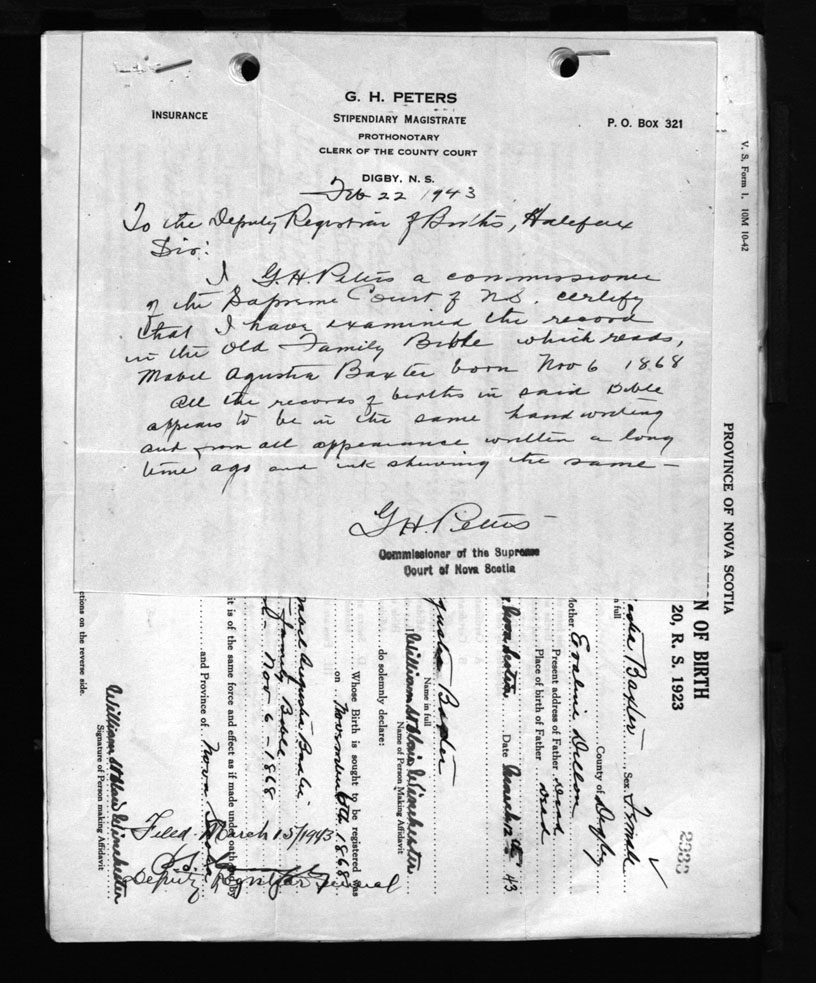 G. H. PETERS
INSURANCE
STIPENDIARY MAGISTRATE
P. O. BOX 321
PROTHONOTARY
CLERK OF THE COUNTY COURT
DIGBY, N. S.
Feb 22 1943
To the Deputy Registrar of Births, Halifax
Sir:
I G.H. Peters a commissioner
of the Supreme Court of N.S. certify
that I have examined the record
in the Old Family Bible which reads,
Mabel Agustia Baxter born Nov 6 1868
All the records of births in said Bible
appears to be in the same hand writing
and from all appearance written a long
time ago and ink shewing the same —
G H. Peters
Commissioner of the Supreme
Court of Nova Scotia
V. S. Form 1. 10M 10-42
PROVINCE OF NOVA SCOTIA
N OF BIRTH
20, R. S. 1923
2933
Baxter Sex Female
n full
County of Digby
Mother Evaline Dillon
Present address of Father Dead
Place of birth of Father Dead
Nova Scotia Date March 12th 43
Baxter
Name in full
I William St Clair Winchester
Name of Person Making Affidavit
do solemnly declare:
Whose Birth is sought to be registered was
on November 6th 1868
Mabel Augusta Baxter
Family Bible
Nov 6 - 1868
it is of the same force and effect as if made under oath
and Province of Nova Scotia
ctions on the reverse side.
William St Clair Winchester
Signature of Person making Affidavit
Filed March 15/1943
Deputy Registrar General